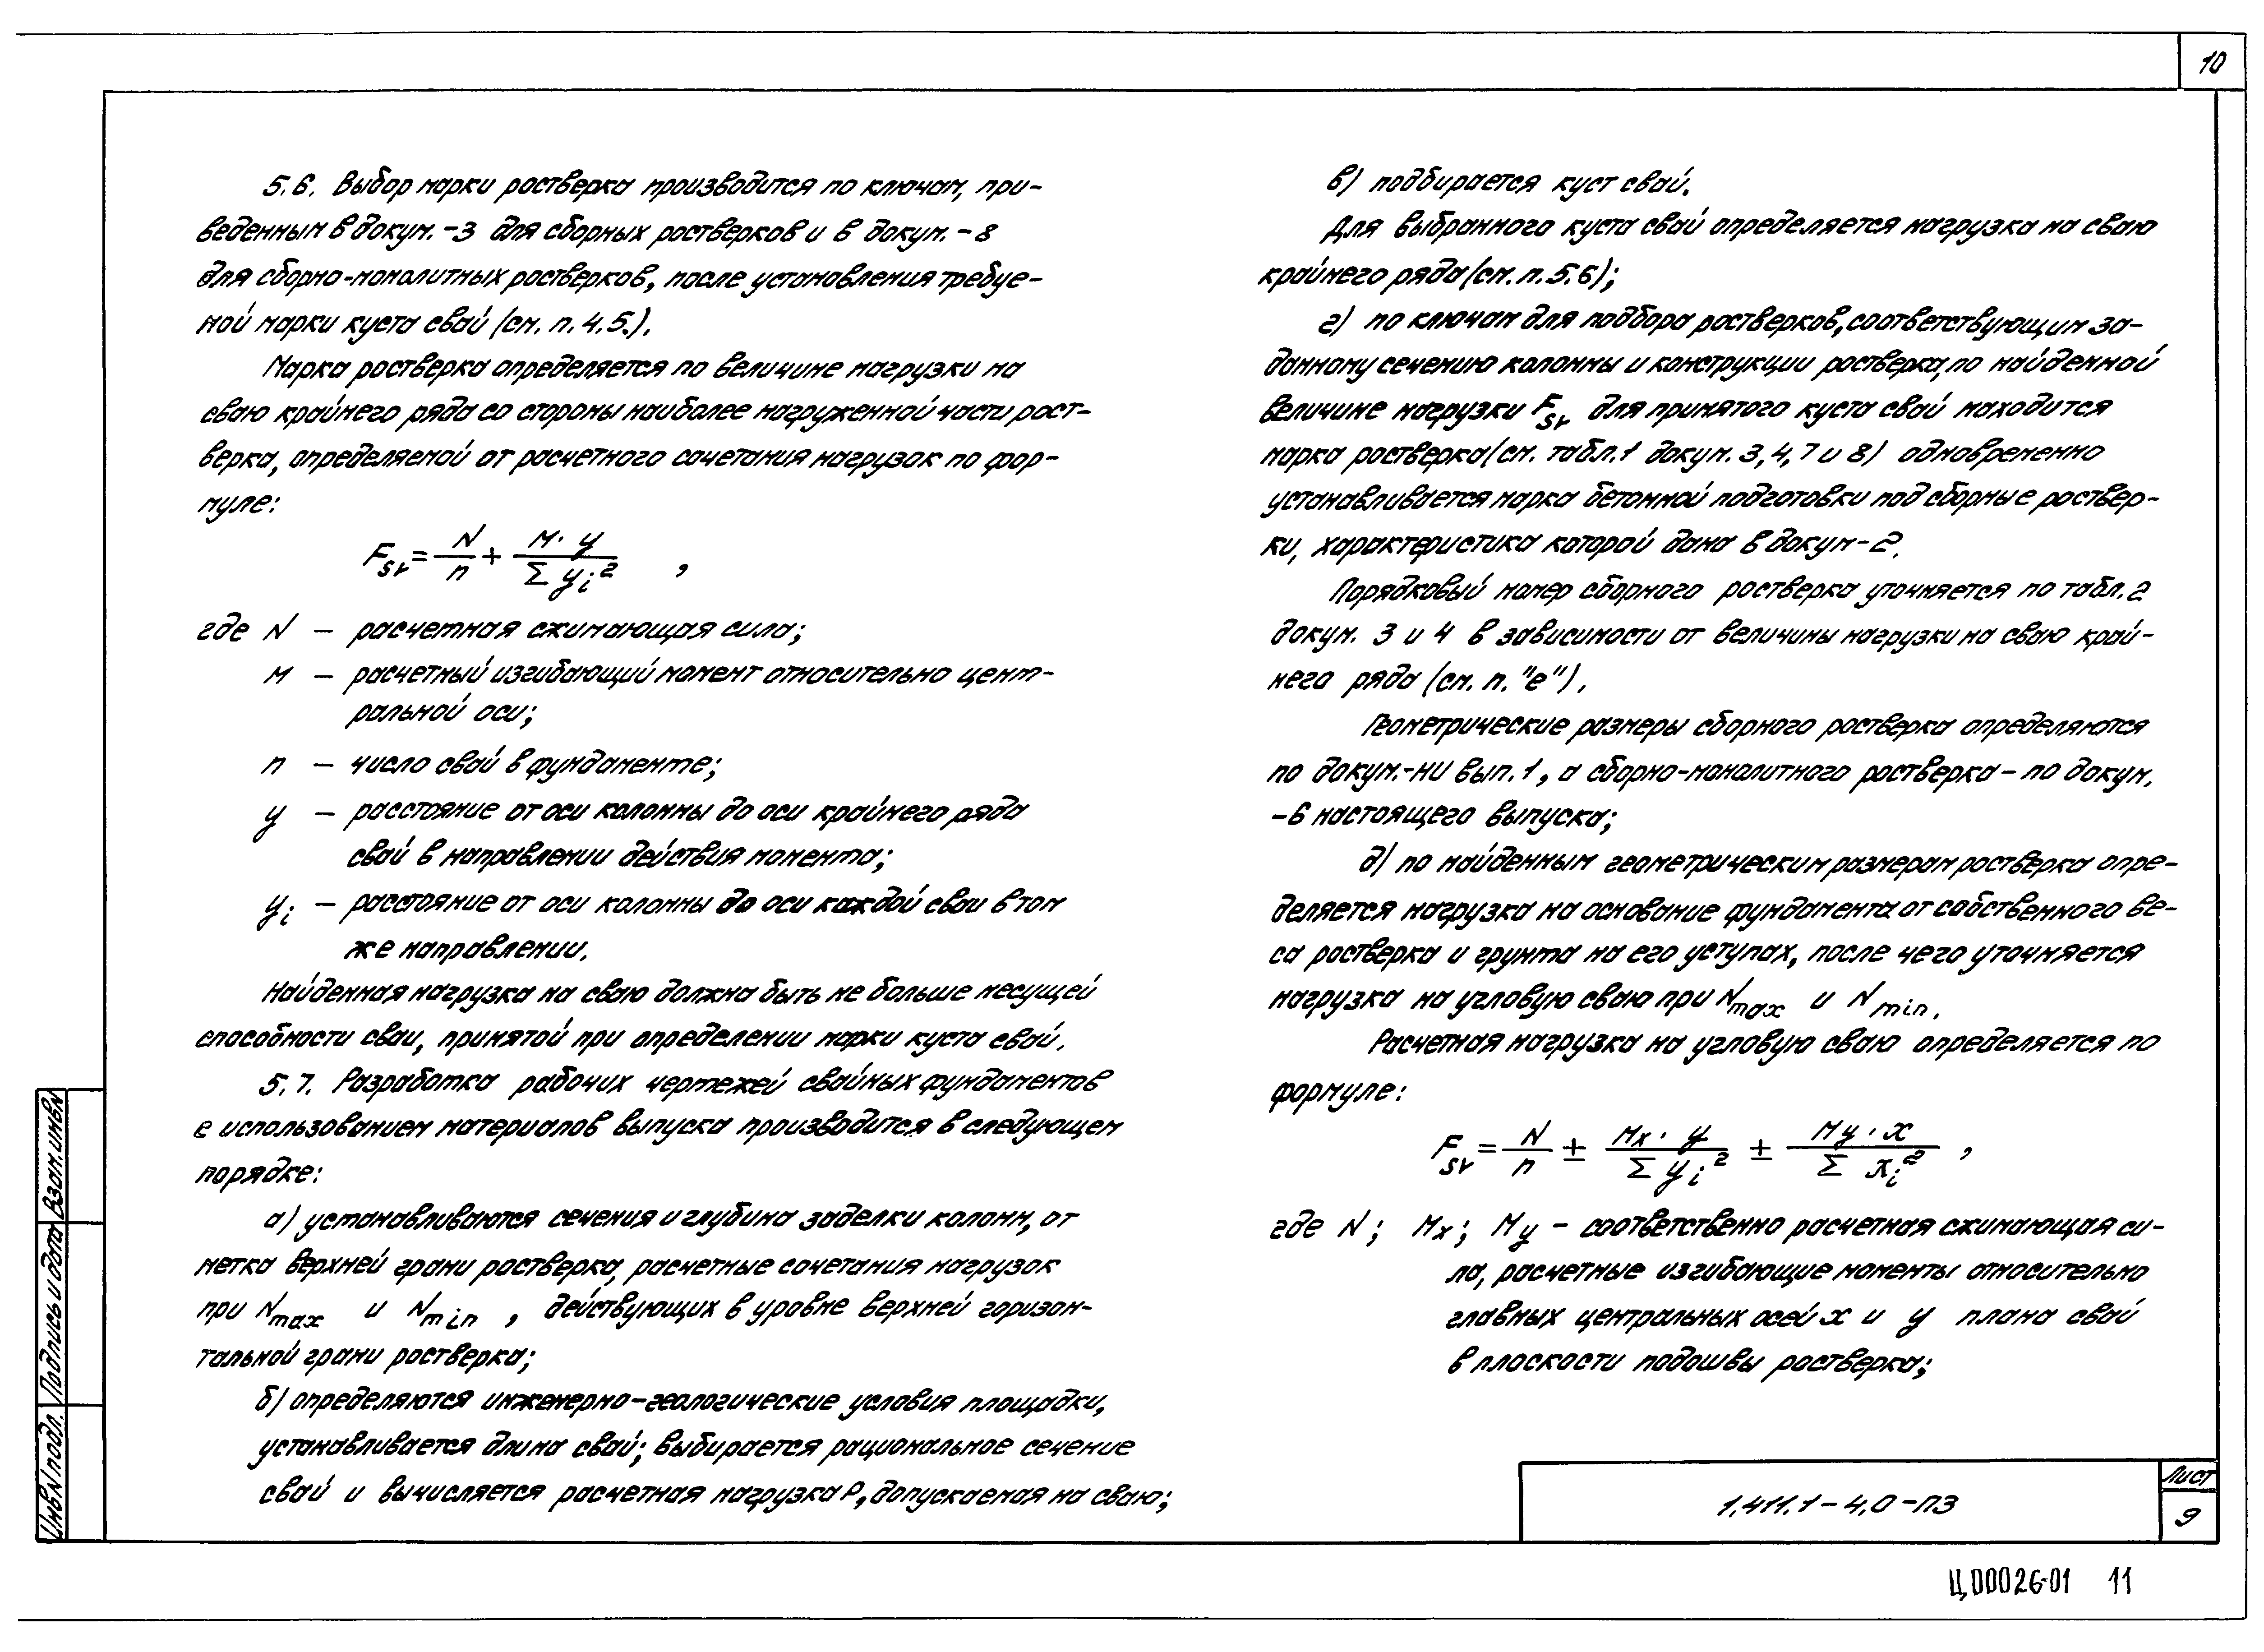 10
5.6. Выбор марки ростверка производится по ключам, при-
веденным в докум. -3 для сборных ростверков и в докум. - 8
для сборно-монолитных ростверков, после установления требуе-
мой марки куста свай (см. п. 4.5.).
Марка ростверка определяется по величине нагрузки на
сваю крайнего ряда со стороны наиболее нагруженной части рост-
верка, определяемой от расчетного сочетания нагрузок по фор-
муле:
Fsr = N/n + M·y/Σyi² ,
где N – расчетная сжимающая сила;
M – расчетный изгибающий момент относительно цент-
ральной оси;
n – число свай в фундаменте;
y – расстояние от оси колонны до оси крайнего ряда
свай в направлении действия момента;
yi – расстояние от оси колонны до оси каждой сваи в том
же направлении.
Найденная нагрузка на сваю должна быть не больше несущей
способности сваи, принятой при определении марки куста свай.
5.7. Разработка рабочих чертежей свайных фундаментов
с использованием материалов выпуска производится в следующем
порядке:
а) устанавливаются сечения и глубина заделки колонн, от
метка верхней грани ростверка, расчетные сочетания нагрузок
при Nmax и Nmin , действующих в уровне верхней горизон-
тальной грани ростверка;
б) определяются инженерно-геологические условия площадки,
устанавливается длина свай; выбирается рациональное сечение
свай и вычисляется расчетная нагрузка P, допускаемая на сваю;
в) подбирается куст свай.
Для выбранного куста свай определяется нагрузка на сваю
крайнего ряда (см. п. 5.6);
г) по ключам для подбора ростверков, соответствующим за-
данному сечению колонны и конструкции ростверка, по найденной
величине нагрузки Fsr для принятого куста свай находится
марка ростверка (см. табл.1 докум. 3, 4, 7 и 8) одновременно
устанавливается марка бетонной подготовки под сборные роствер-
ки, характеристика которой дана в докум-2.
Порядковый номер сборного ростверка уточняется по табл. 2
докум. 3 и 4 в зависимости от величины нагрузки на сваю край-
него ряда (см. п. "е").
Геометрические размеры сборного ростверка определяются
по докум.-НИ вып. 1, а сборно-монолитного ростверка – по докум.
-6 настоящего выпуска;
д) по найденным геометрическим размерам ростверка опре-
деляется нагрузка на основание фундамента от собственного ве-
са ростверка и грунта на его уступах, после чего уточняется
нагрузка на угловую сваю при Nmax и Nmin.
Расчетная нагрузка на угловую сваю определяется по
формуле:
Fsr = N/n ± Mx·y/Σyi² ± My·x/Σxi² ,
где N; Mx; My – соответственно расчетная сжимающая си-
ла, расчетные изгибающие моменты относительно
главных центральных осей x и y плана свай
в плоскости подошвы ростверка;
Взам.инв№
Подпись и дата
Инв№подл.
1.411.1 – 4.0 – ПЗ
Лист
9
Ц00026-01 11